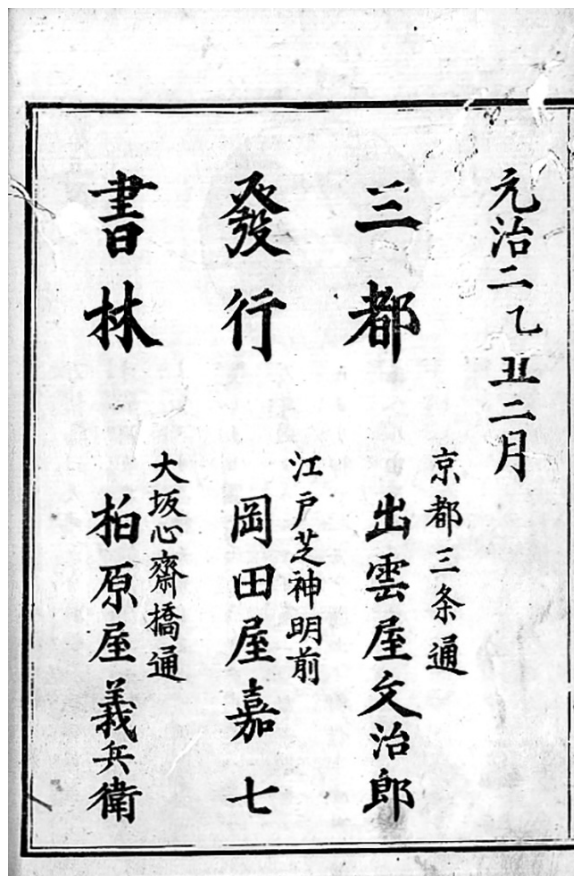 元治二乙丑二月
三都
京都三条通
出雲屋文治郎
發行
江戸芝神明前
岡田屋嘉七
書林
大坂心齋橋通
柏原屋義兵衛